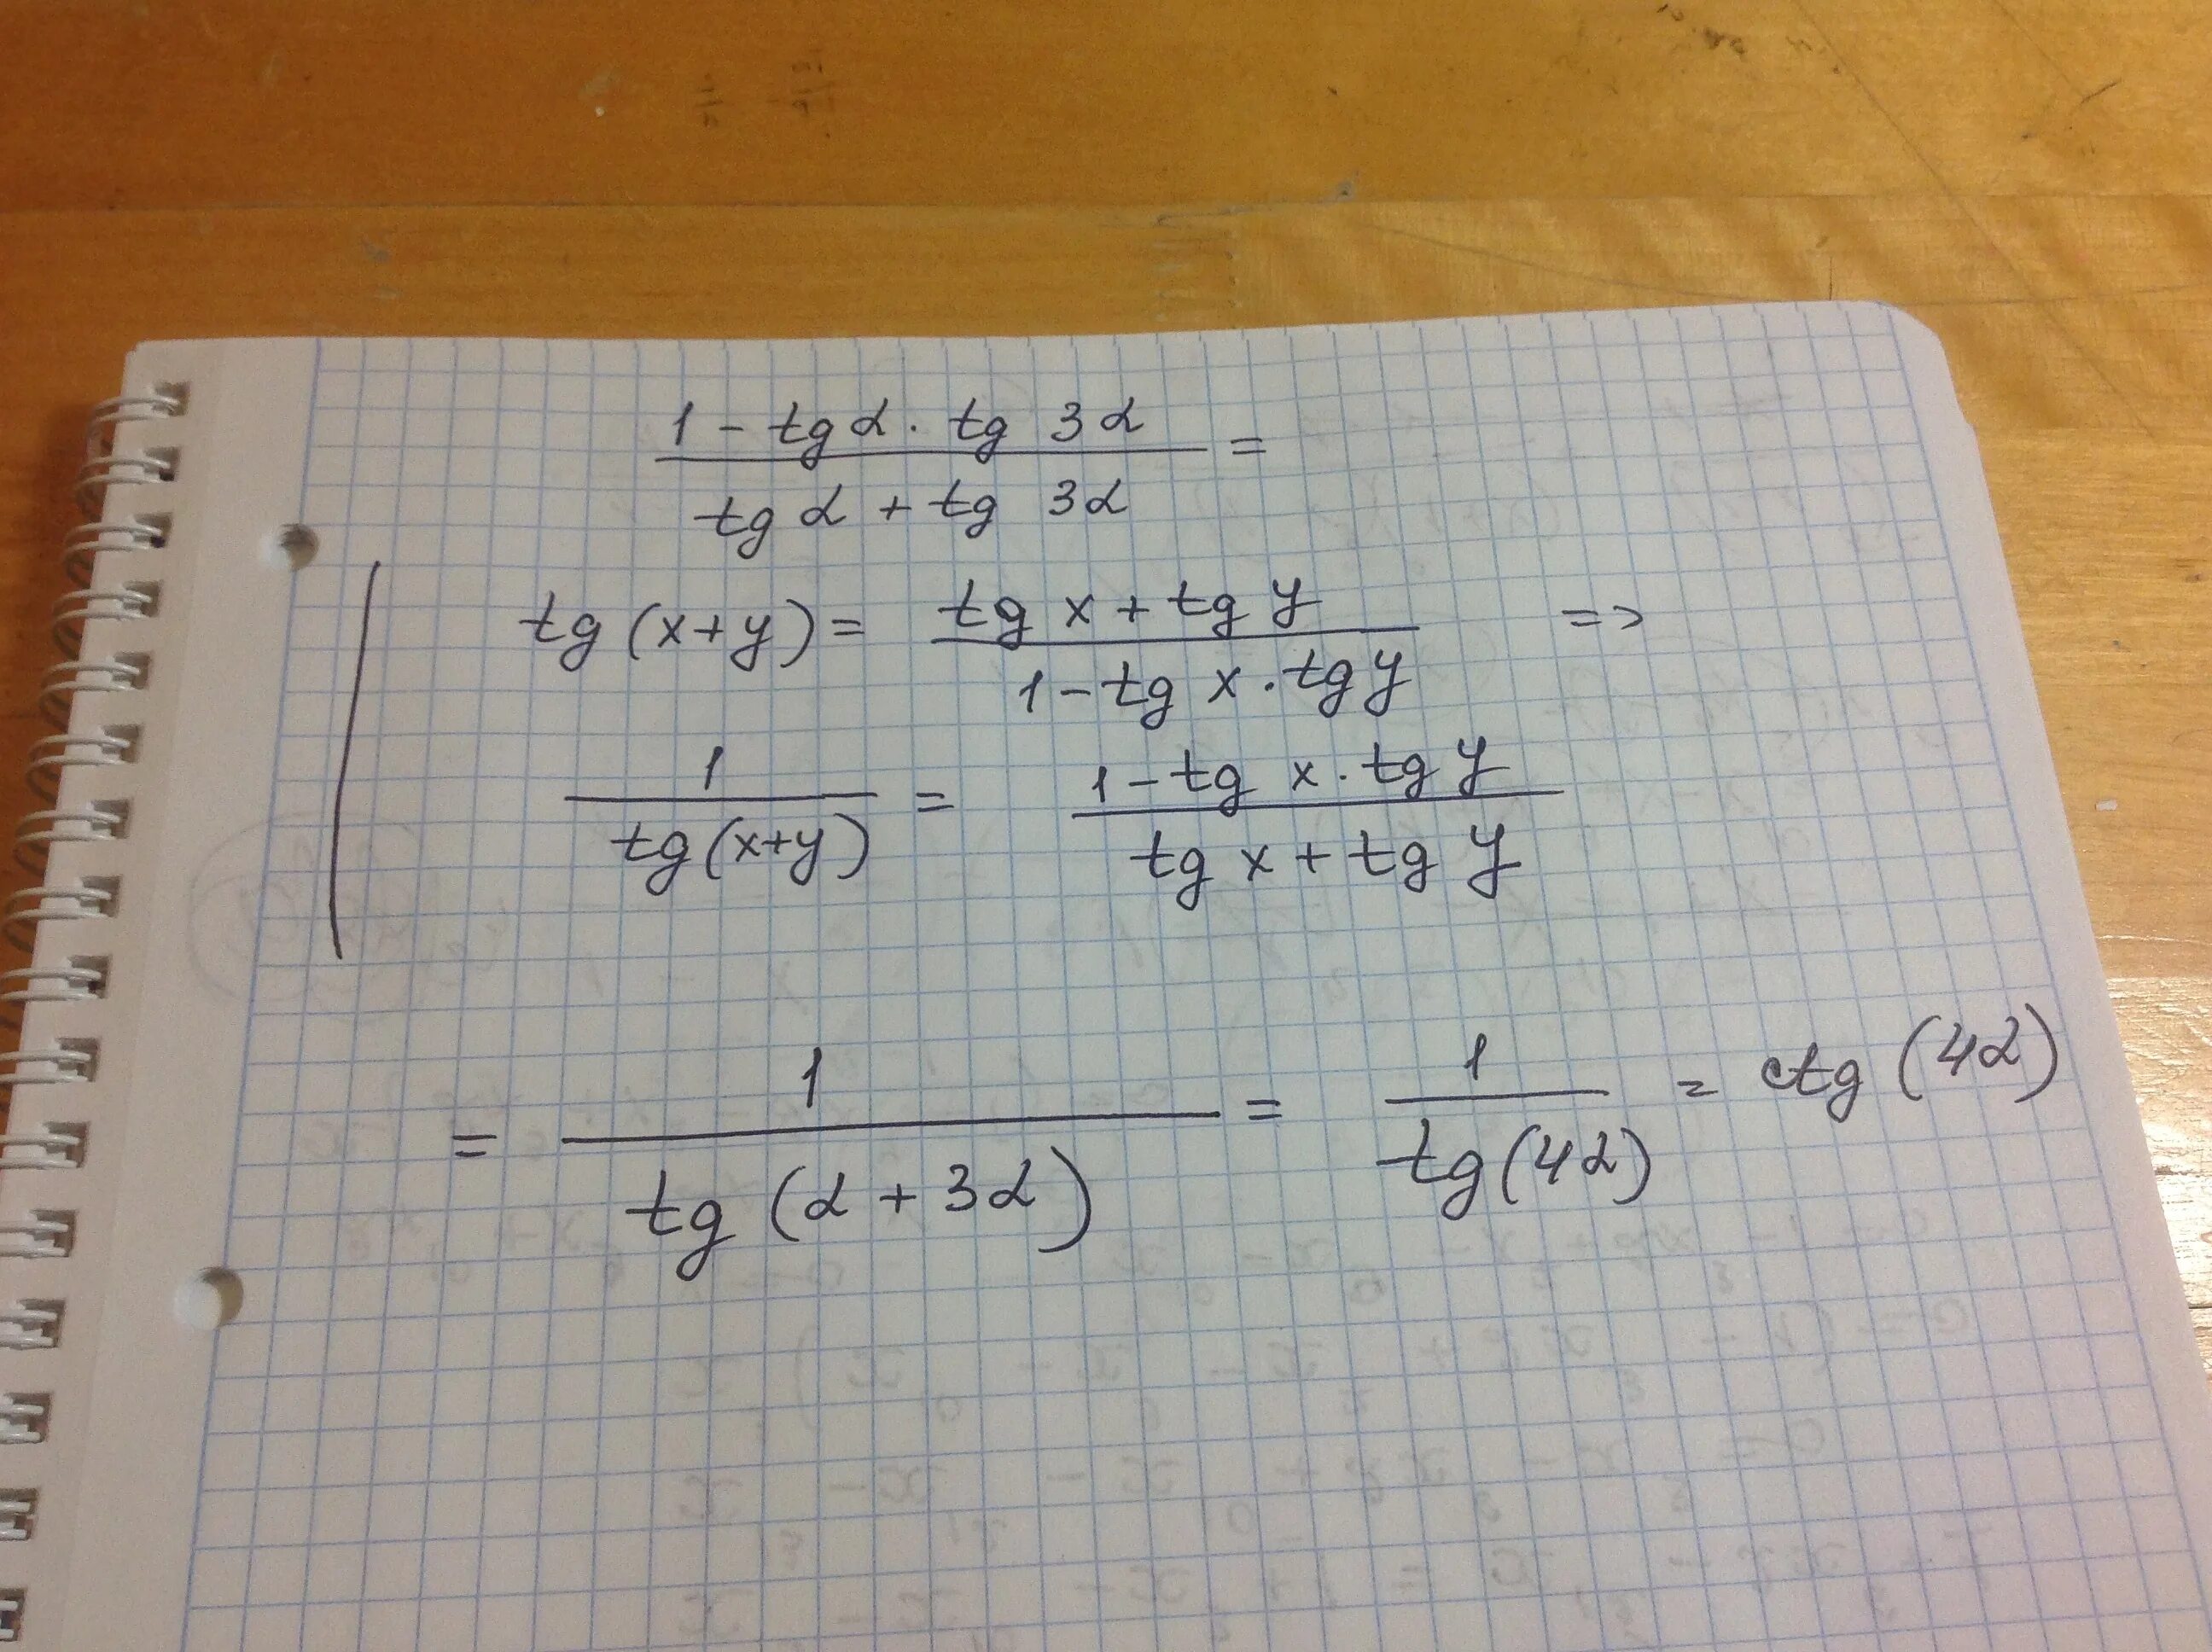 (1 - tg α · tg 3α) / (tg α + tg 3α) =
tg (x+y) = (tg x + tg y) / (1 - tg x · tg y) =>
1 / tg (x+y) = (1 - tg x · tg y) / (tg x + tg y)
= 1 / tg (α + 3α) = 1 / tg (4α) = ctg (4α)